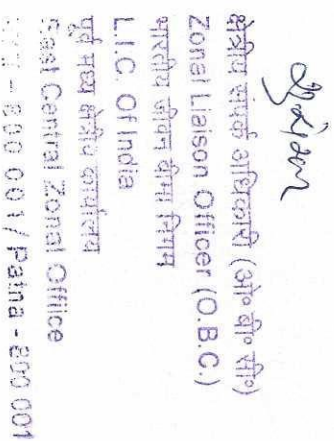 क्षेत्रीय संपर्क अधिकारी (ओ० बी० सी०)
Zonal Liaison Officer (O.B.C.)
भारतीय जीवन बीमा निगम
L.I.C. Of India
पूर्व मध्य क्षेत्रीय कार्यालय
East Central Zonal Office
- 800 001 / Patna - 800 001